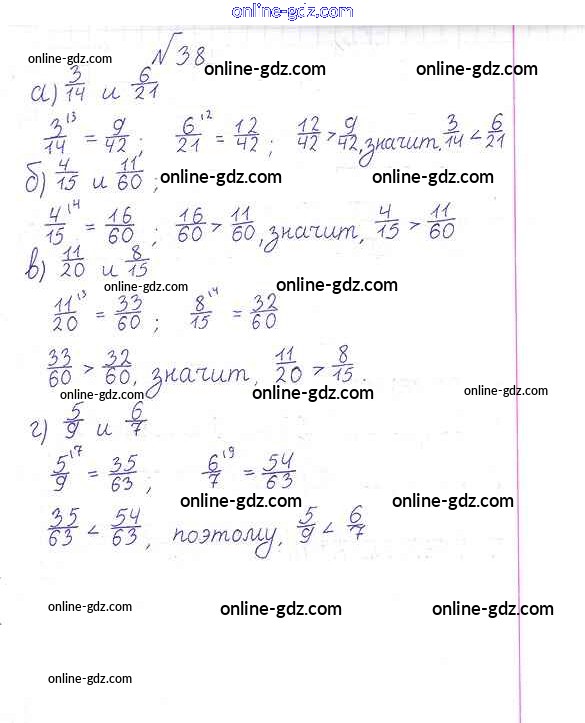 online-gdz.com
№38
online-gdz.com online-gdz.com online-gdz.com
а) 3/14 и 6/21
3/14 \3 = 9/42; 6/21 \2 = 12/42; 12/42 > 9/42, значит, 3/14 < 6/21
б) 4/15 и 11/60;
online-gdz.com online-gdz.com
4/15 \4 = 16/60; 16/60 > 11/60, значит, 4/15 > 11/60
в) 11/20 и 8/15
online-gdz.com online-gdz.com
11/20 \3 = 33/60; 8/15 \4 = 32/60
33/60 > 32/60, значит, 11/20 > 8/15.
online-gdz.com online-gdz.com online-gdz.com
г) 5/9 и 6/7
5/9 \7 = 35/63; 6/7 \9 = 54/63
online-gdz.com online-gdz.com
35/63 < 54/63, поэтому, 5/9 < 6/7
online-gdz.com online-gdz.com online-gdz.com
online-gdz.com